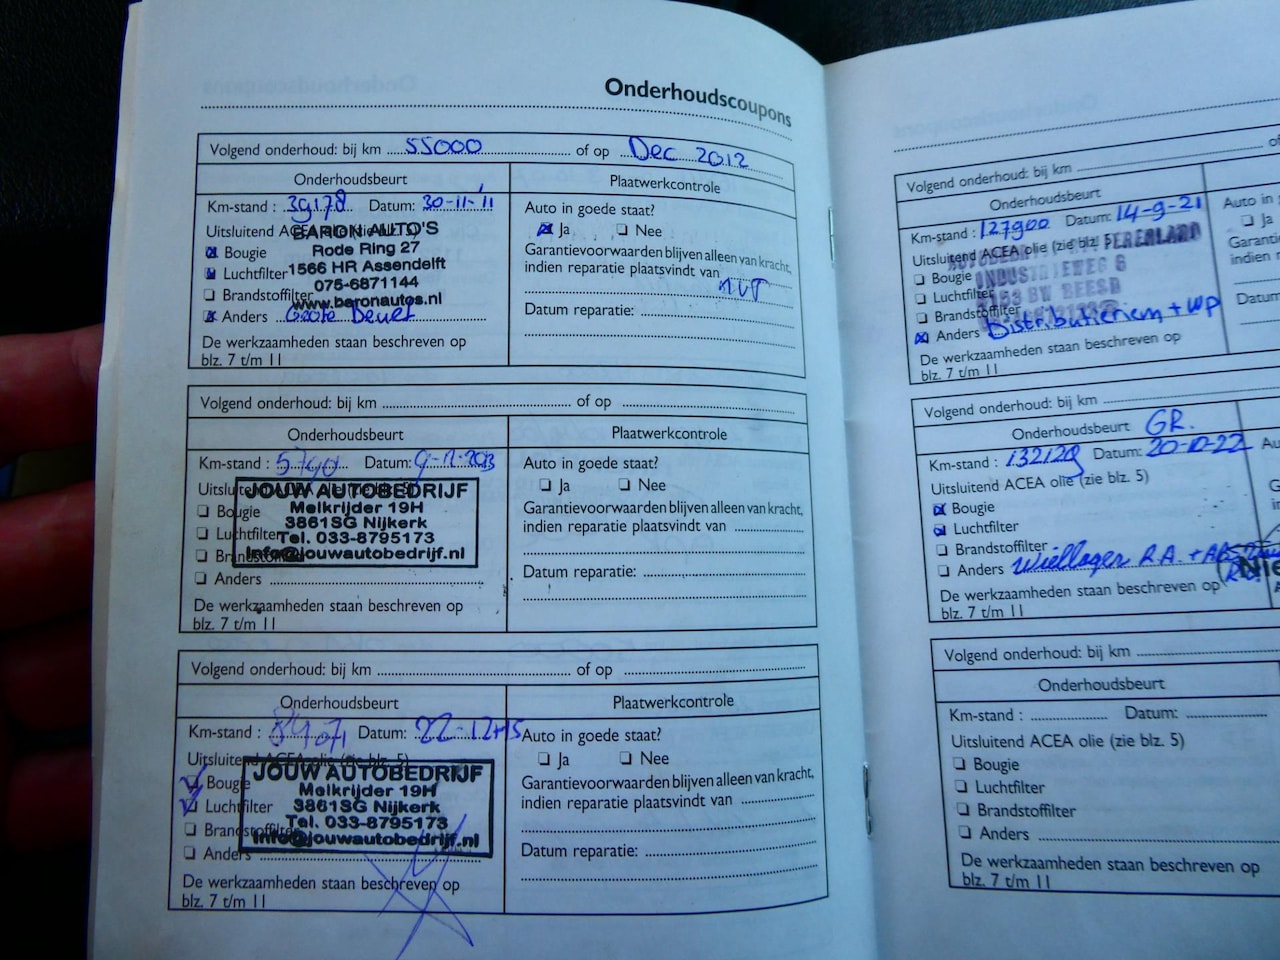 Onderhoudscoupons
Volgend onderhoud: bij km 55000 of op Dec 2012
Onderhoudsbeurt
Plaatwerkcontrole
Km-stand : 39178 Datum: 30-11-'11
Uitsluitend ACEA olie (zie blz. 5)
BARON AUTO'S
Rode Ring 27
1566 HR Assendelft
075-6871144
www.baronautos.nl
Bougie
Luchtfilter
Brandstoffilter
Anders Grote Beurt
De werkzaamheden staan beschreven op
blz. 7 t/m 11
Auto in goede staat?
Ja Nee
Garantievoorwaarden blijven alleen van kracht,
indien reparatie plaatsvindt van
Datum reparatie:
Volgend onderhoud: bij km of op
Onderhoudsbeurt
Plaatwerkcontrole
Km-stand : Datum: 9-12-2013
Uitsluitend ACEA olie (zie blz. 5)
JOUW AUTOBEDRIJF
Melkrijder 19H
3861SG Nijkerk
Tel. 033-8795173
Info@jouwautobedrijf.nl
Bougie
Luchtfilter
Brandstoffilter
Anders
De werkzaamheden staan beschreven op
blz. 7 t/m 11
Auto in goede staat?
Ja Nee
Garantievoorwaarden blijven alleen van kracht,
indien reparatie plaatsvindt van
Datum reparatie:
Volgend onderhoud: bij km of op
Onderhoudsbeurt
Plaatwerkcontrole
Km-stand : Datum: 22-12-15
Uitsluitend ACEA olie (zie blz. 5)
JOUW AUTOBEDRIJF
Melkrijder 19H
3861SG Nijkerk
Tel. 033-8795173
Info@jouwautobedrijf.nl
Bougie
Luchtfilter
Brandstoffilter
Anders
De werkzaamheden staan beschreven op
blz. 7 t/m 11
Auto in goede staat?
Ja Nee
Garantievoorwaarden blijven alleen van kracht,
indien reparatie plaatsvindt van
Datum reparatie:
Volgend onderhoud: bij km
Onderhoudsbeurt
Km-stand : 127900 Datum: 14-9-21
Uitsluitend ACEA olie (zie blz. 5
INDUSTRIEWEG 6
BEESD
Bougie
Luchtfilter
Brandstoffilter
Anders Distributieriem + WP
De werkzaamheden staan beschreven op
blz. 7 t/m 11
Auto in
Ja
Garanti
indien
Datum
Volgend onderhoud: bij km
Onderhoudsbeurt GR.
Km-stand : 132129 Datum: 20-10-22
Uitsluitend ACEA olie (zie blz. 5)
Bougie
Luchtfilter
Brandstoffilter
Anders Wiellager R.A. +
De werkzaamheden staan beschreven op
blz. 7 t/m 11
Volgend onderhoud: bij km
Onderhoudsbeurt
Km-stand : Datum:
Uitsluitend ACEA olie (zie blz. 5)
Bougie
Luchtfilter
Brandstoffilter
Anders
De werkzaamheden staan beschreven op
blz. 7 t/m 11